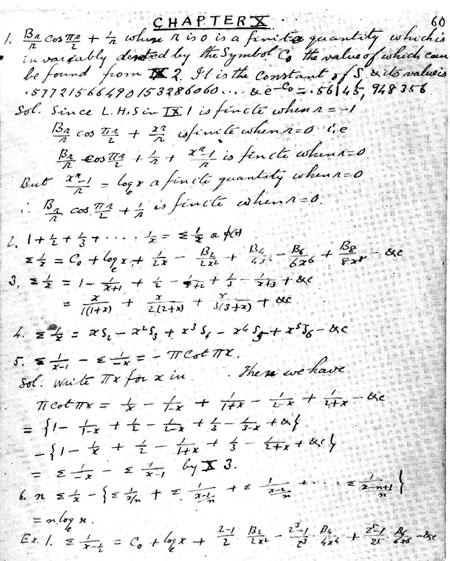 CHAPTER X. 60
1. B_n/n cos πn/2 + 1/n when n is 0 is a finite quantity which is
invariably denoted by the Symbol C₀ the value of which can
be found from IX 2. It is the Constant of S₁ & its value is
.577215664901532860 60... & e^{-C₀} = .56145,948356
Sol. Since L.H.S in IX 1 is finite when n = -1
B_n/n cos πn/2 + x^n/n is finite when n=0 i,e
B_n/n cos πn/2 + 1/n + (x^n-1)/n is finite when n=0
But (x^n-1)/n = log x a finite quantity when n=0
∴ B_n/n cos πn/2 + 1/n is finite when n=0.
2. 1 + 1/2 + 1/3 + .... 1/x = Σ 1/x or φ(x)
Σ 1/x = C₀ + log_e x + 1/2x - B₂/2x² + B₄/4x⁴ - B₆/6x⁶ + B₈/8x⁸ - &c
3. Σ 1/x = 1 - 1/(x+1) + 1/2 - 1/(x+2) + 1/3 - 1/(x+3) + &c
= x/1(1+x) + x/2(2+x) + x/3(3+x) + &c
4. Σ 1/x = xS₂ - x²S₃ + x³S₄ - x⁴S₅ + x⁵S₆ - &c
5. Σ 1/(x-1) - Σ 1/-x = -π Cot πx.
Sol. Write πx for x in Then we have
π cot πx = 1/x - 1/(1-x) + 1/(1+x) - 1/(2-x) + 1/(2+x) - &c
= {1 - 1/(1-x) + 1/2 - 1/(2-x) + 1/3 - 1/(3-x) + &c}
- {1 - 1/x + 1/2 - 1/(1+x) + 1/3 - 1/(2+x) + &c}
= Σ 1/-x - Σ 1/(x-1) by X 3.
6. n Σ 1/x - {Σ 1/(x/n) + Σ 1/((x-1)/n) + Σ 1/((x-2)/n) + .... Σ 1/((x-n+1)/n)}
= n log_e n.
Ex. 1. Σ 1/(x-1/2) = C₀ + log_e x + (2-1)/2 · B₂/2x² - (2³-1)/2³ · B₄/4x⁴ + (2⁵-1)/2⁵ · B₆/6x⁶ - &c